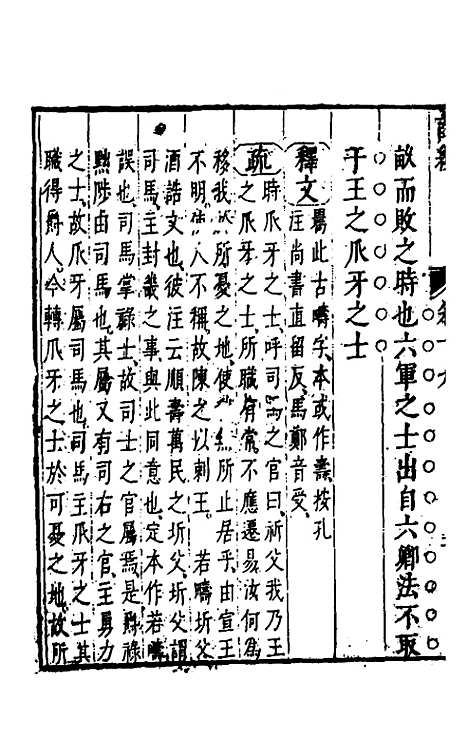 畝而敗之時也六軍之士出自六卿法不取
于王之爪牙之士
釋文
㽬此古疇字本或作壽按孔
注尚書直留反馬鄭音受
疏
時爪牙之士呼司馬之官曰祈父我乃王
之爪牙之士所職有常不應遷易汝何為
移我於所憂之地使我無所止居乎由宣王
不明使人不稱故陳之以刺王 若疇圻父
酒誥文也彼注云順壽萬民之圻父圻父謂
司馬主封畿之事與此同意也定本作若疇
誤也司馬掌祿士故司士之官屬焉是爵祿
黜陟由司馬也其屬又有司右之官主勇力
之士故爪牙屬司馬也司馬主爪牙之士其
職得爵人今轉爪牙之士於可憂之地故所